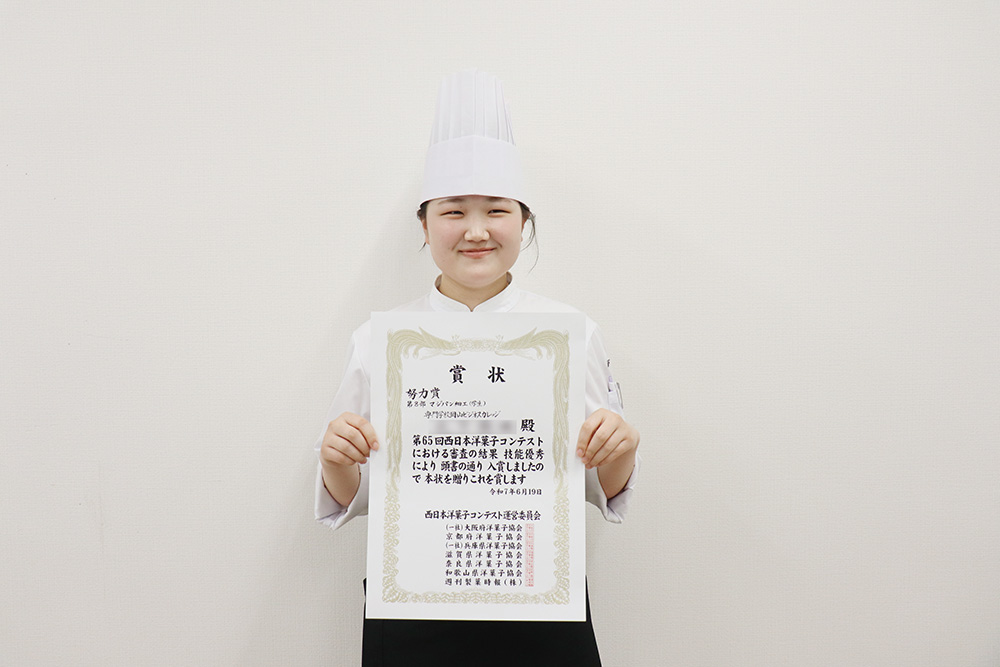 賞状
努力賞
第8部 マジパン細工(学生)
専門学校岡山ビジネスカレッジ
殿
第65回西日本洋菓子コンテスト
における審査の結果 技能優秀
により 頭書の通り 入賞しましたの
で 本状を贈りこれを賞します
令和7年6月19日
西日本洋菓子コンテスト運営委員会
(一社)大阪府洋菓子協会
京都府洋菓子協会
(一社)兵庫県洋菓子協会
滋賀県洋菓子協会
奈良県洋菓子協会
和歌山県洋菓子協会
週刊製菓時報(株)